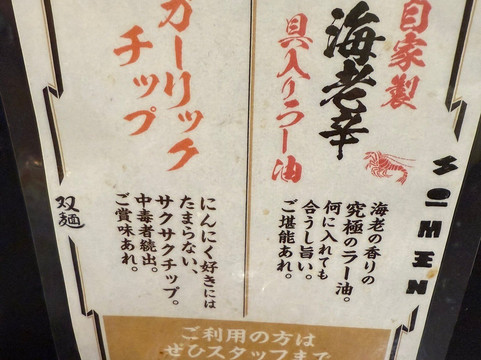 自家製
海老辛
具入りラー油
海老の香りの
究極のラー油。
何に入れても
合うし旨い。
ご堪能あれ。
ガーリック
チップ
にんにく好きには
たまらない、
サクサクチップ。
中毒者続出。
ご賞味あれ。
双麺
SOMEN
ご利用の方は
ぜひスタッフまで